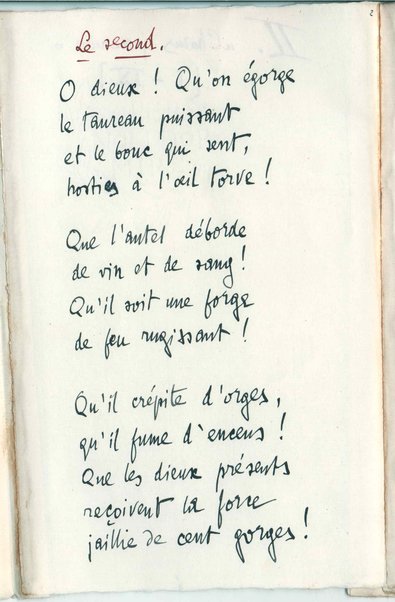 2
Le second.
O dieux ! Qu'on égorge
le taureau puissant
et le bouc qui sent,
hosties à l'œil torve !
Que l'autel déborde
de vin et de sang !
Qu'il soit une forge
de feu rugissant !
Qu'il crépite d'orges,
qu'il fume d'encens !
Que les dieux présents
reçoivent la force
jaillie de cent gorges !